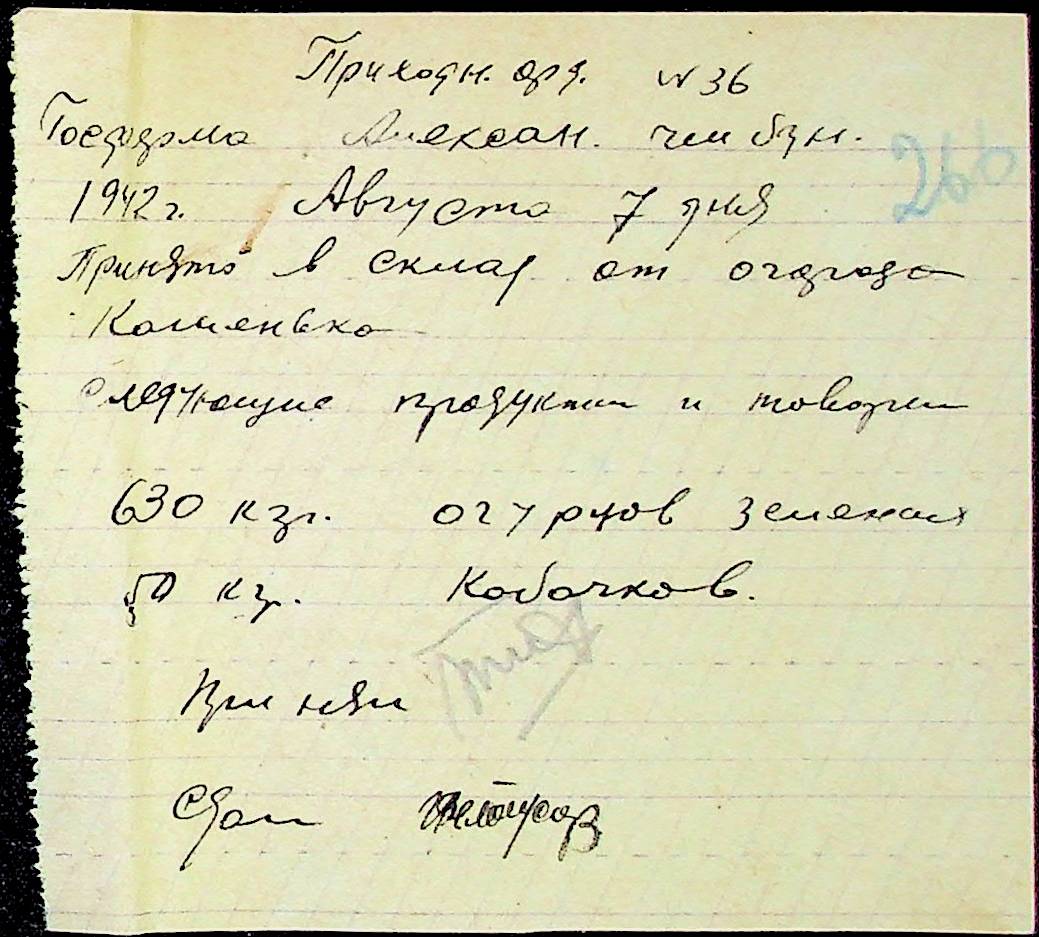 Приходн. орд. N 36
Госфдома Алексан. чем бун.
266
1942 г. Августа 7 дня
Принято в склад от огорода
Коменько
следующие продукти и товари
630 кгр. огурцов зелених
50 кгр. Кобачков.
Приняли
Сдал Белоусов